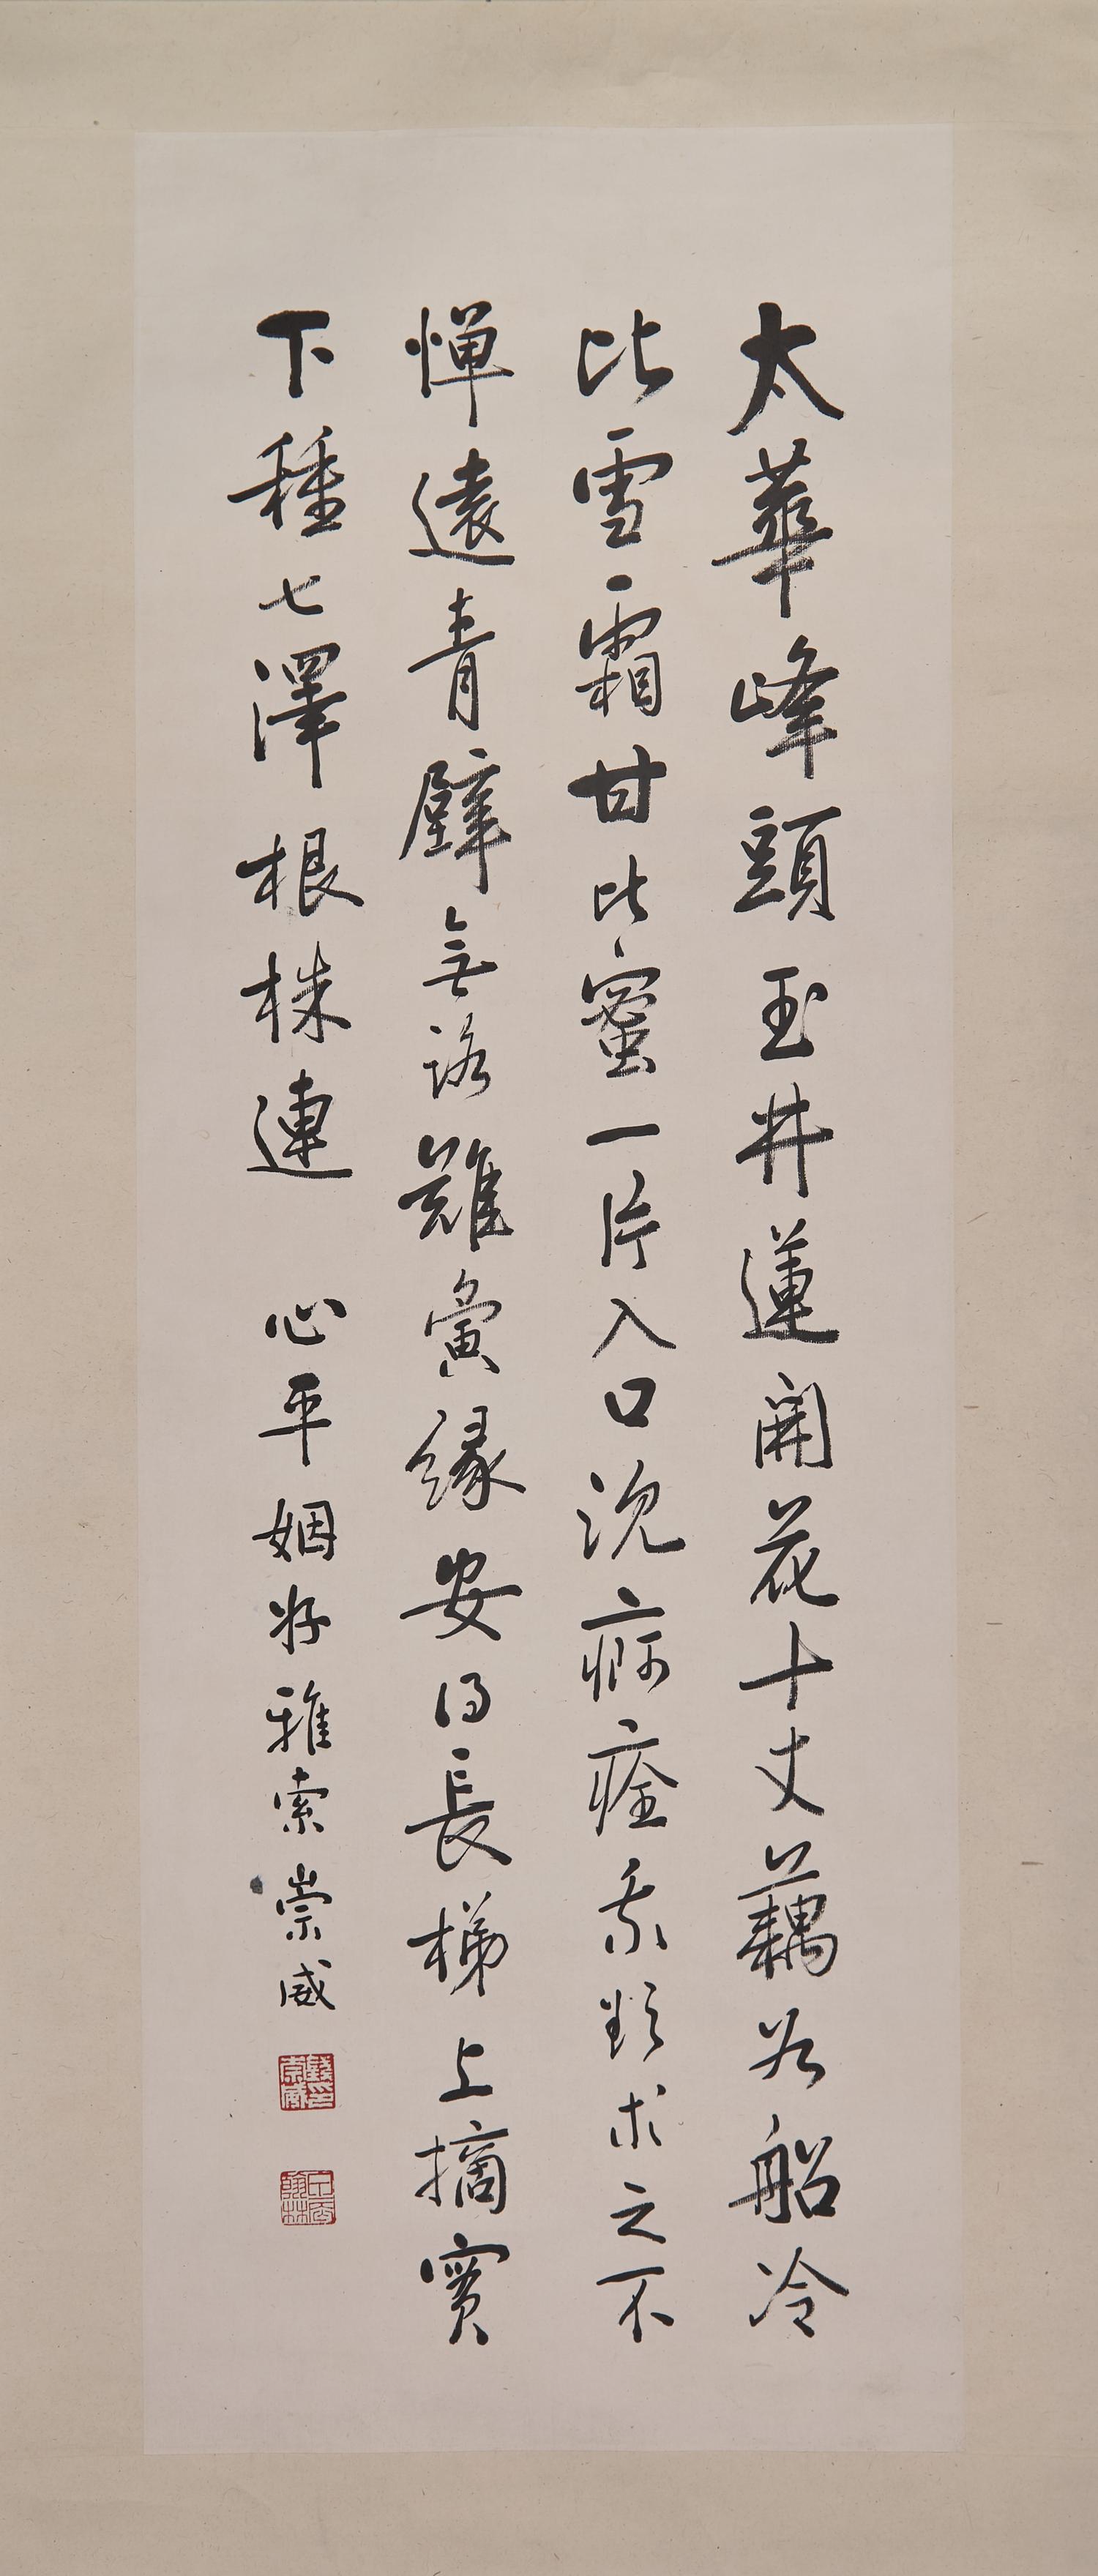 太華峰頭玉井蓮開花十丈藕如船冷
比雪霜甘比蜜一片入口沈痾痊我欲求之不
憚遠青壁無路難夤緣安得長梯上摘實
下種七澤根株連
心平姻好雅索崇威